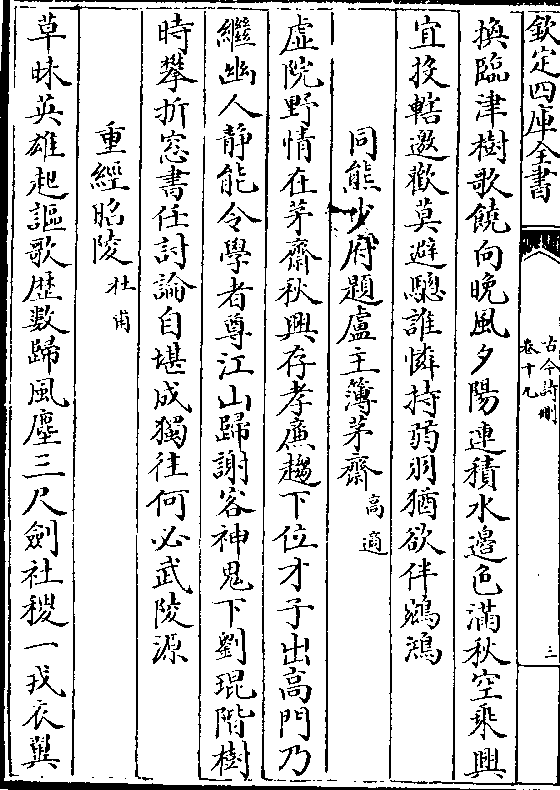 欽定四庫全書
古今詩刪
卷十九
三
換臨津樹歌饒向晚風夕陽連積水邉色滿秋空乘興
宜投轄邀歡莫避驄誰憐持弱羽猶欲伴鵷鴻
同熊少府題盧主簿茅齋 高適
虛院野情在茅齋秋興存孝廉趨下位才子出高門乃
繼幽人靜能令學者尊江山歸謝客神鬼下劉琨階樹
時攀折窓書任討論自堪成獨往何必武陵源
重經昭陵 杜甫
草昧英雄起謳歌歴數歸風塵三尺劍社稷一戎衣翼